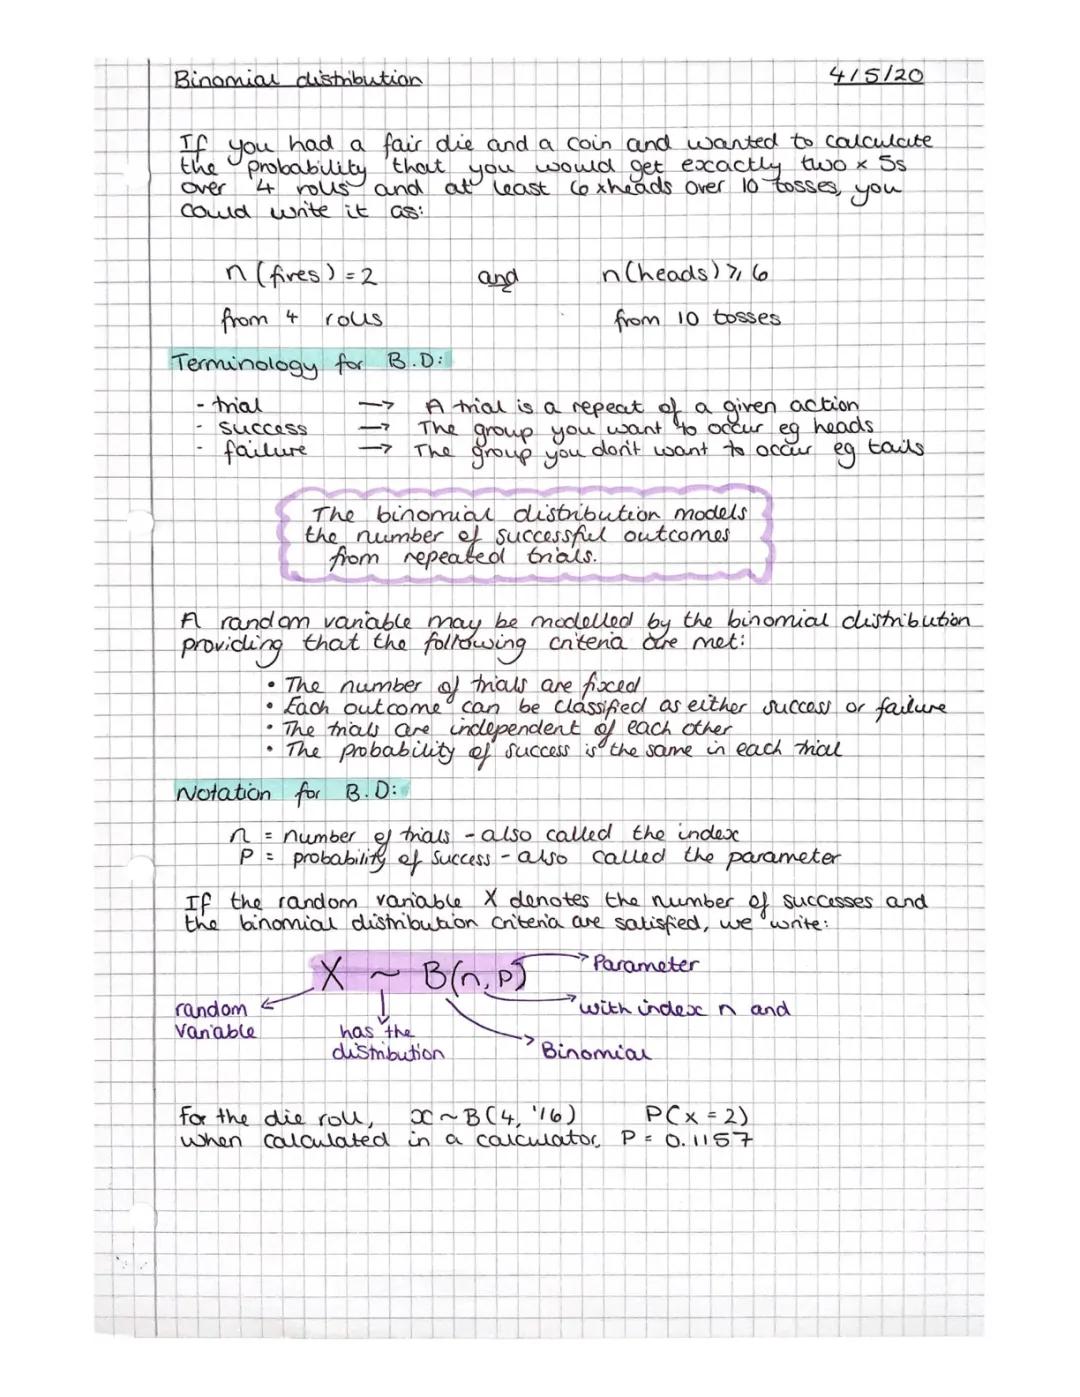 Binomial distribution 4/5/20
If you had a fair die and a coin and wanted to calculate
the probability that you would get excactly two x 5s
over 4 rolls and at least 6 xheads over 10 tosses, you
could write it as:
n (fives) = 2 and n(heads) ⩾ 6
from 4 rolls from 10 tosses
Terminology for B.D:
- trial → A trial is a repeat of a given action
- success → The group you want to occur eg heads
- failure → The group you don't want to occur eg tails
The binomial distribution models
the number of successful outcomes
from repeated trials.
A random variable may be modelled by the binomial distribution
providing that the following criteria are met:
• The number of trials are fixed
• Each outcome can be classified as either success or failure
• The trials are independent of each other
• The probability of success is the same in each trial
Notation for B.D:
n = number of trials - also called the index
P = probability of success - also called the parameter
If the random variable X denotes the number of successes and
the binomial distribution criteria are satisfied, we write:
X ~ B(n, p) → Parameter
random → with index n and
variable has the
distribution → Binomial
For the die roll, x ~ B(4, 1/6) P(x = 2)
when calculated in a calculator, P = 0.1157